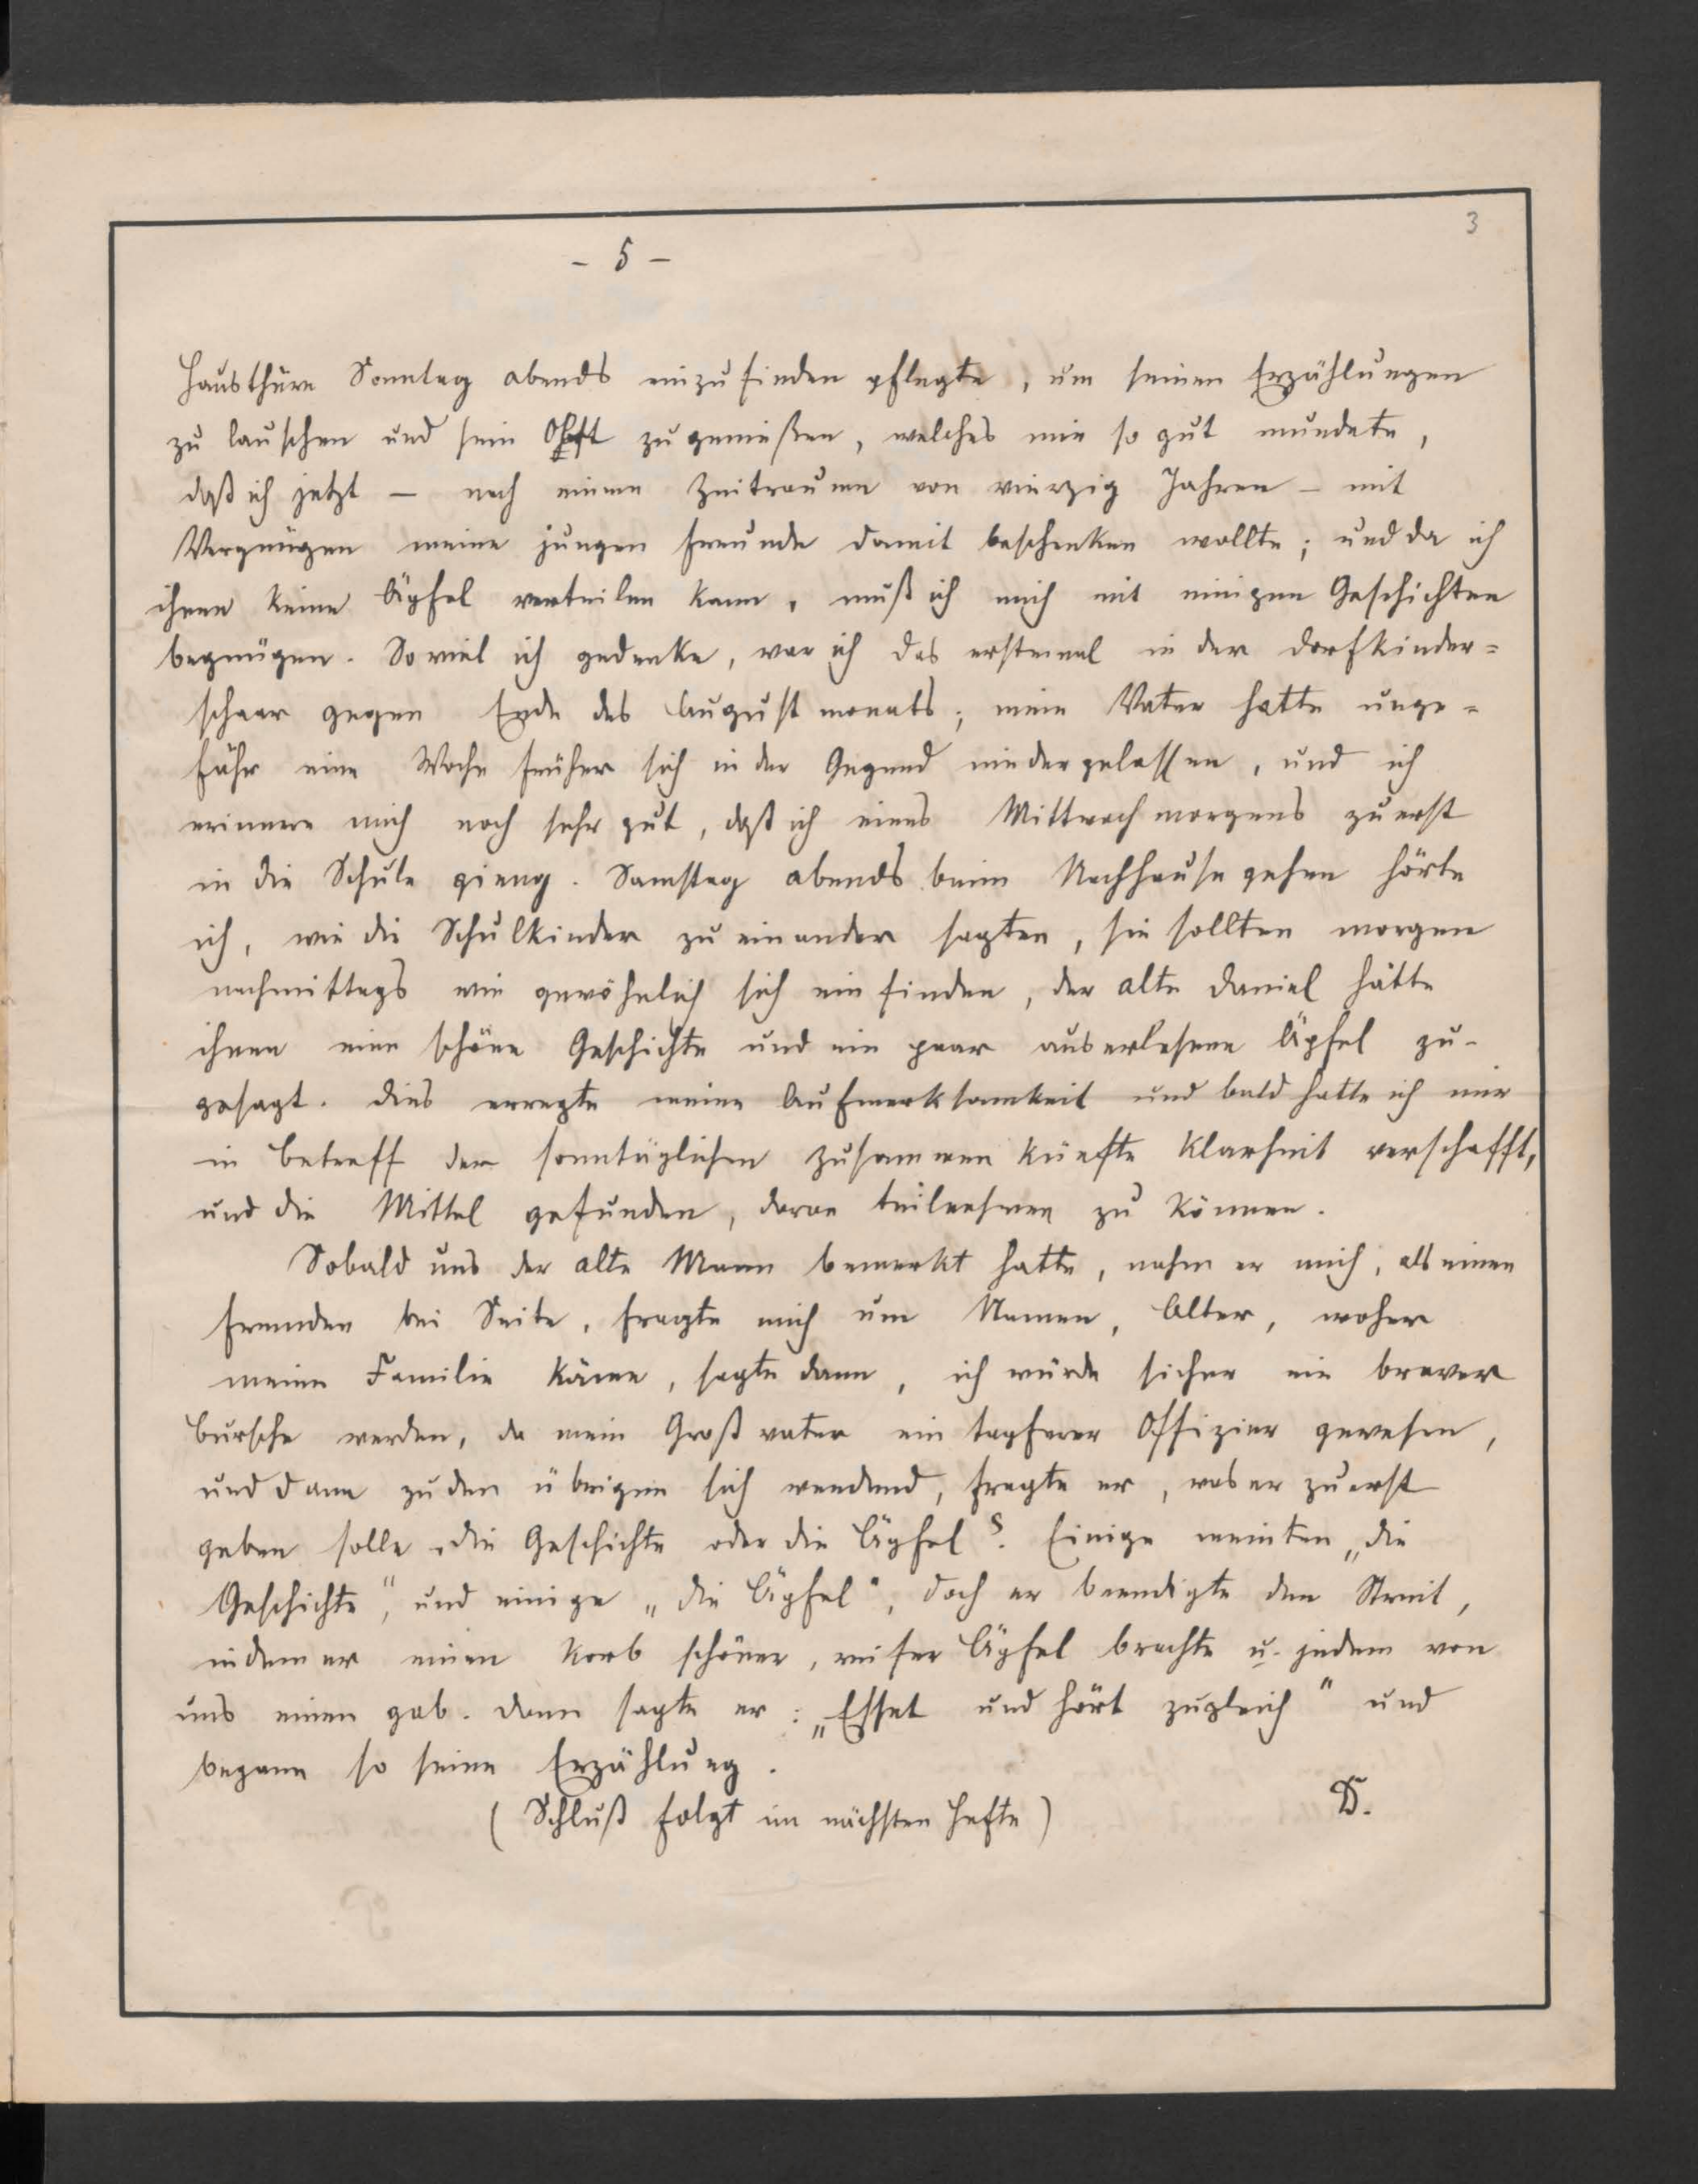 3
- 5 -
Hausthüre Sonntag abends einzufinden pflegte, um seinen Erzählungen
zu lauschen und sein Obst zu genießen, welches mir so gut mundete,
daß ich jetzt – nach einem Zeitraume von vierzig Jahren – mit
Vergnügen meine jungen Freunde damit beschenken wollte; und da ich
ihnen keine Äpfel verteilen kann, muß ich mich mit einigen Geschichten
begnügen. Soviel ich gedenke, war ich das erstemal in der Dorfkinder=
schaar gegen Ende des Augustmonats; mein Vater hatte unge=
fähr eine Woche früher sich in der Gegend niedergelassen, und ich
erinnere mich noch sehr gut, daß ich eines Mittwochmorgens zuerst
in die Schule gieng. Samstag abends beim Nachhausegehen hörte
ich, wie die Schulkinder zu einander sagten, sie sollten morgen
nachmittags wie gewöhnlich sich einfinden, der alte Daniel hätte
ihnen eine schöne Geschichte und ein paar auserlesene Äpfel zu-
gesagt. Dies erregte meine Aufmerksamkeit und bald hatte ich mir
in Betreff der sonntäglichen Zusammenkünfte Klarheit verschafft,
und die Mittel gefunden, daran teilnehmen zu können.
Sobald uns der alte Mann bemerkt hatte, nahm er mich, als einen
Fremden bei Seite, fragte mich um Namen, Alter, woher
meine Familie käme, sagte dann, ich würde sicher ein braver
Bursche werden, da mein Großvater ein tapferer Offizier gewesen,
und dann zu den übrigen sich wendend, fragte er, was er zuerst
geben solle, die Geschichte oder die Äpfel? Einige meinten „die
Geschichte", und einige „die Äpfel", doch er beendigte den Streit,
indem er einen Korb schöner, reifer Äpfel brachte u. jedem von
uns einen gab. Dann sagte er: „Esset und hört zugleich" und
begann so seine Erzählung.
(Schluß folgt im nächsten Hefte)
D.